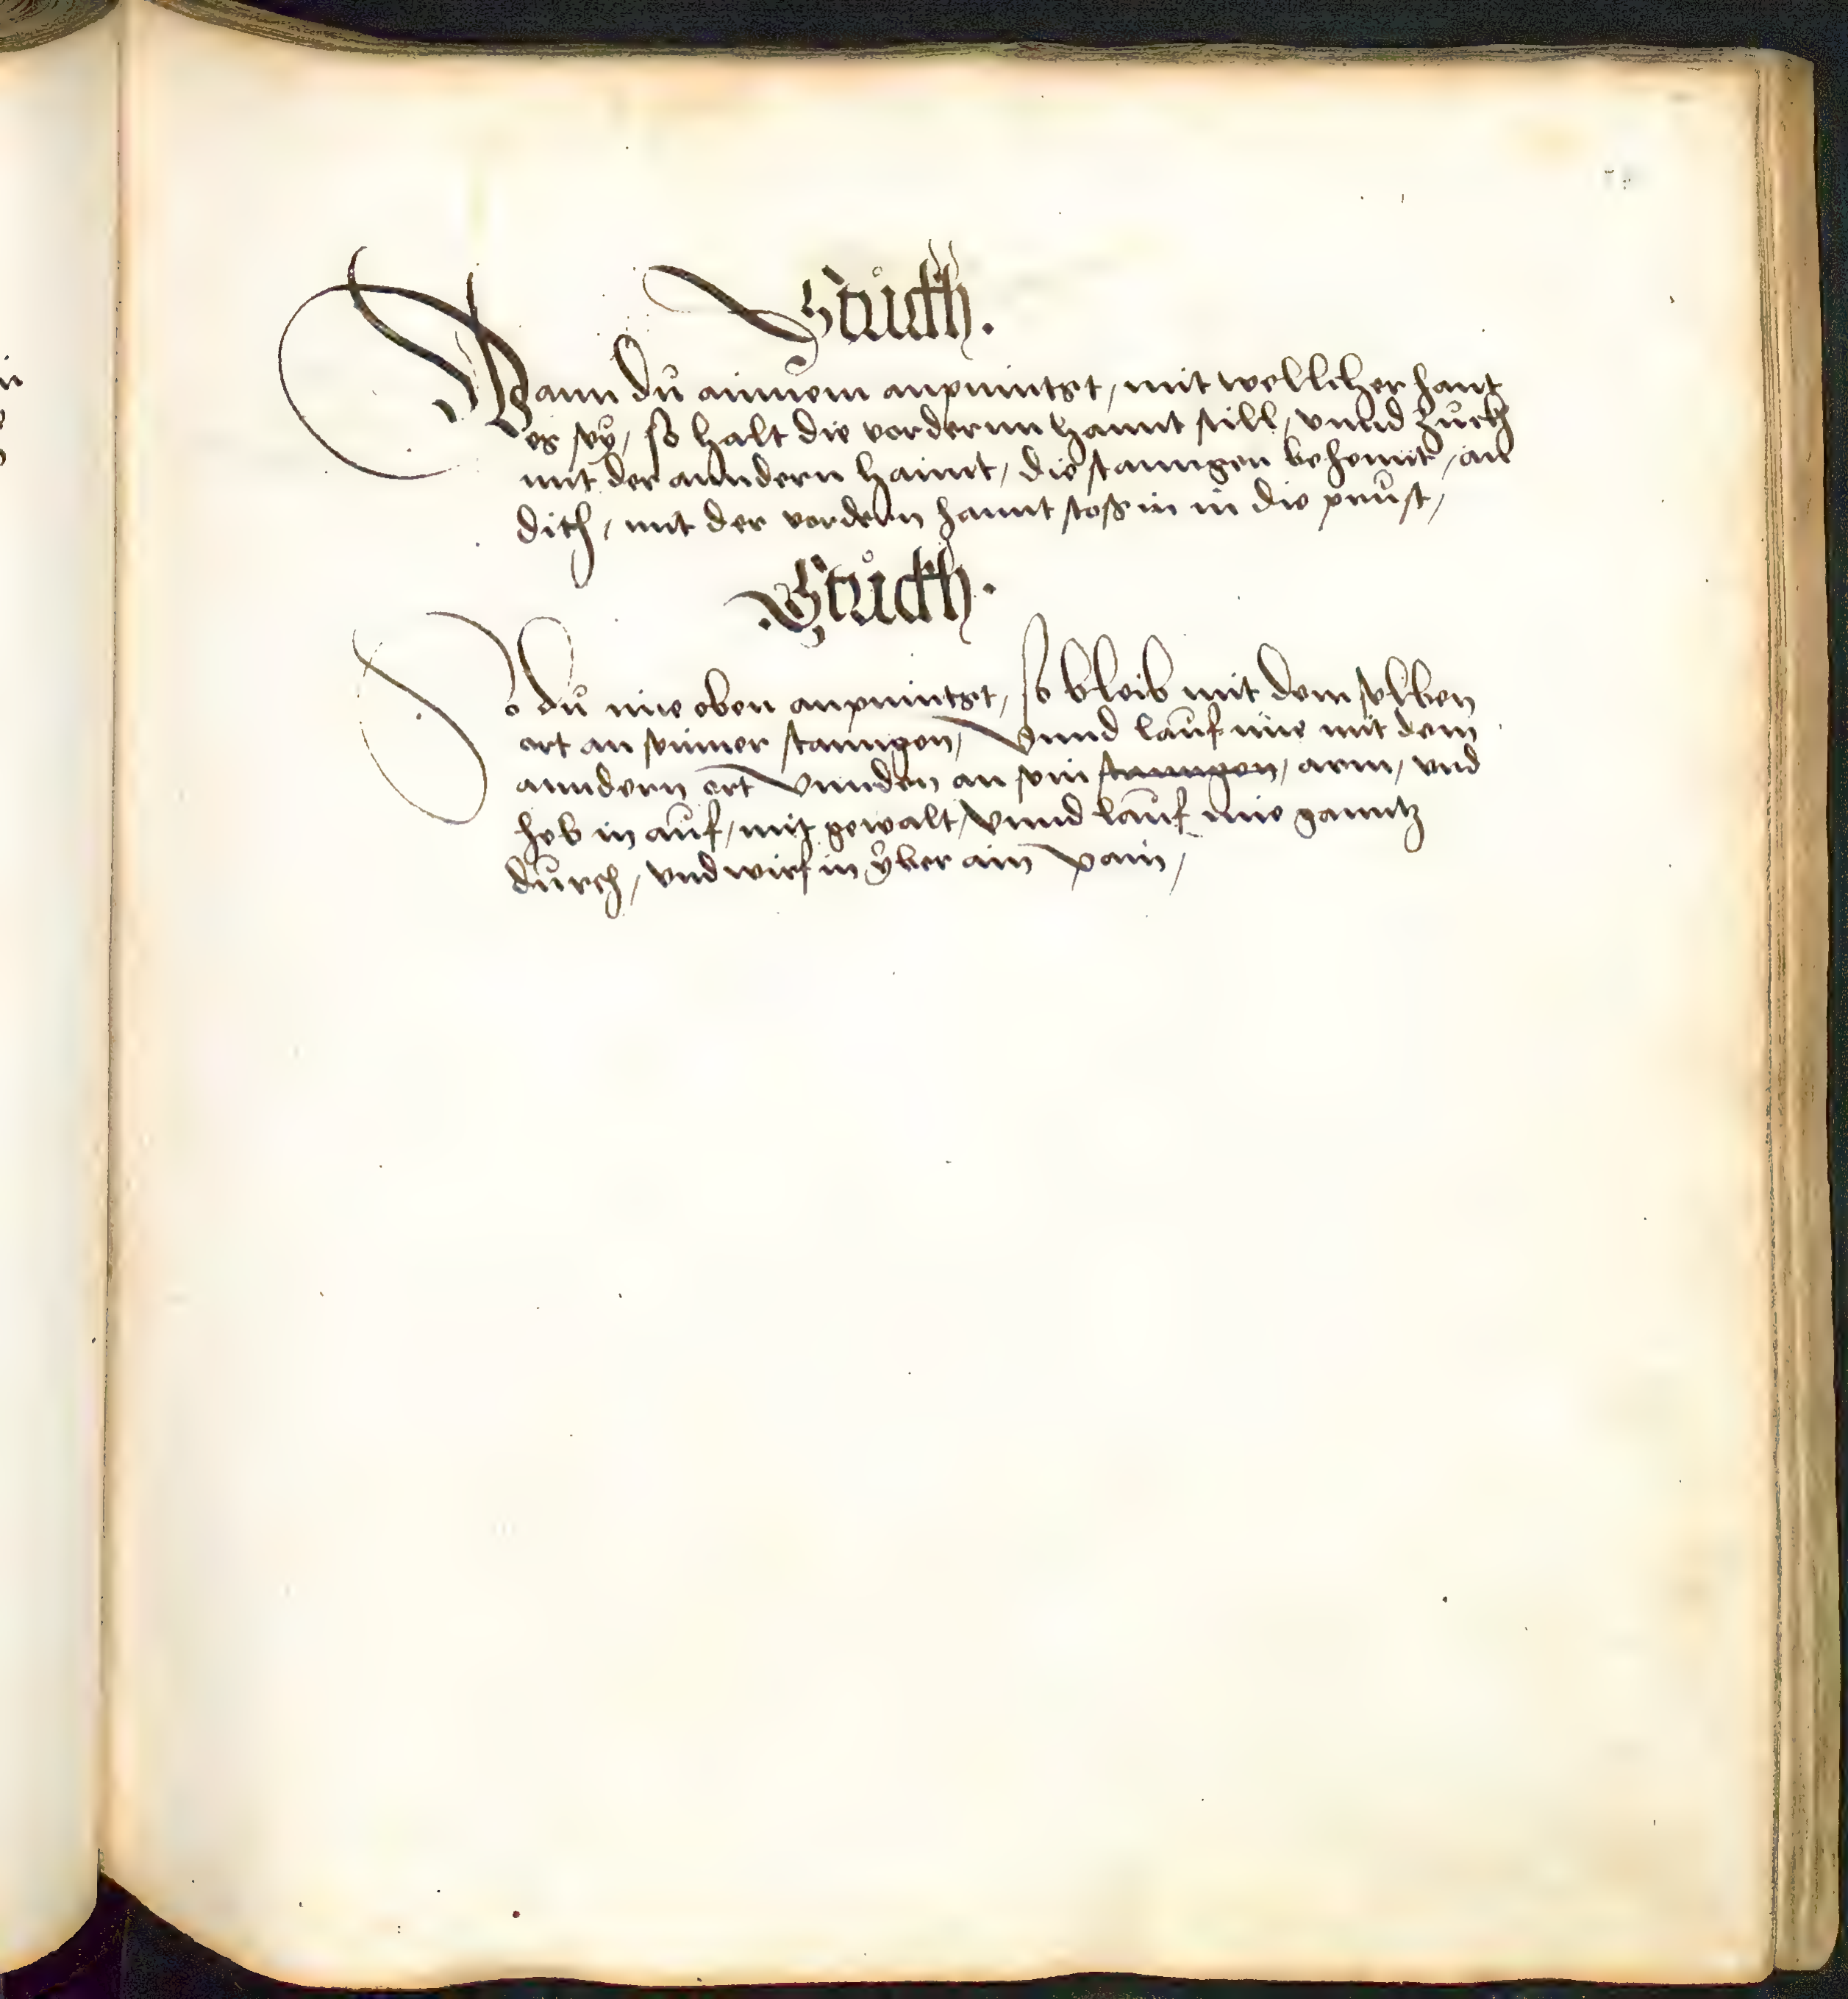 Stuckh.
Wann du ainnem anpinntzt, mit wellicher hant
es sey, so halt die vordernn hannt still, vnnd zuckh
mit der anndern hannt, die stanngen behennt, an
dich, mit der vordern hannt stoß in in die prust,
Stuckh.
So du im oben anpinntzt, so bleib mit dem selben
ort an seinner stanngen, Vnnd lauf im mit dem
anndern ort Vnnden an sein stanngen, arm, vnd
heb in auf, mit gewalt, Vnnd lauf im ganntz
durch, vnd wirf in yber ain pain,